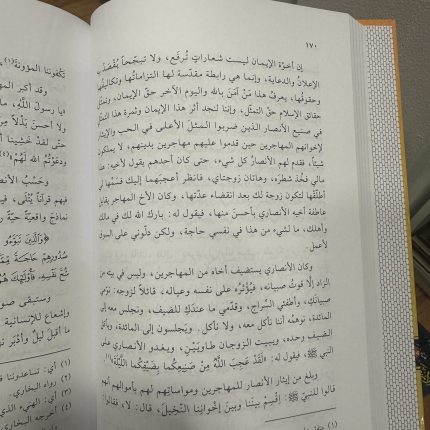 ١٧٠
إن أخوّة الإيمان ليست شعاراتٍ تُرفَع، ولا تبجّحاً يُقصَد به
الإعلانُ والدعاية، وإنما هي رابطة مقدّسة لها التزاماتُها وتكاليفُها
وحقوقُها، يعرفُ هذا مَنْ آمَنَ بالله واليوم الآخر حقّ الإيمان، وتمثّل
حقائق الإسلام حقّ التمثّل، وإننا لنجد أثر هذا الإيمان وثمرة هذا التمثّل
في صنيع الأنصار الذين ضربوا المثلَ الأعلى في الحب والإيثار
لإخوانهم المهاجرين حين قدموا عليهم مهاجرين بدينهم، لا يملكون
شيئاً، فقدم لهم الأنصارُ كل شيء، حتى كان أحدهم يقول لأخيه: هذا
مالي فخُذْ شطرَه، وهاتان زوجتاي، فانظر أعجبَهما إليك فسَمِّها لي
أطلّقْها لتكون زوجة لك بعد انقضاء عدّتها، وكان الأخ المهاجر يقابل
عاطفة أخيه الأنصاري بأحسنَ منها، فيقول له: بارك الله لك في مالك
وأهلك، ما لشيء من هذا في نفسي حاجة، ولكن دلّوني على السوق
لأعمل.
وكان الأنصاري يستضيف أخاه من المهاجرين، وليس في بيته من
الزاد إلّا قوتُ صبيانه، فيُؤثِرُه على نفسه وعياله، قائلاً لزوجه: نوّمي
صبيانَكِ، وأطفئي السِّراج، وقدّمي ما عندَكِ للضيف، ونجلس معه إلى
المائدة، نوهمُه أننا نأكل معه، ولا نأكل. ويَجلسون إلى المائدة، ويأكل
الضيف وحده، ويبيت الزوجان طاويَيْنِ، ويغدو الأنصاري على
النبي ﷺ، فيقول له: «لَقَدْ عَجِبَ اللَّهُ مِنْ صَنيعِكُما بضَيْفِكُما اللَّيْلَةَ»(١).
وبلغ من إيثار الأنصار للمهاجرين ومواساتِهم لهم بأموالهم أنهم
قالوا للنبيّ ﷺ: اقْسِمْ بيننا وبينَ إخواننا النخيلَ، قال: لا، فقالوا:
(١)
تكْفوننا المؤونَةَ(١)
وقد أكبر المها
«يا رسولَ اللَّهِ، ما
ولا أحسنَ بَذْلاً مِنْ
حتى لقد خَشِينا أ
ودعَوْتُم اللهَ لَهُمْ»(٤)
وحَسْبُ الأنصا
فيهم قرآناً يُتْلى،
نماذجَ واقعيّةً حيّةً
﴿وَالَّذِينَ تَبَوَّءُو
صُدُورِهِمْ حَاجَةً مِّمَّا
شُحَّ نَفْسِهِ، فَأُوْلَٰئِكَ هُمُ
وستبقى صو
وإشعاع للإنسانية
ما أقبلَ ليلٌ وأدْبَرَ
(١) أي: تساعدوننا
(٢) رواه البخاري.
(٣) أي: الهنيء الذي
(٤) أخرجه البخاري